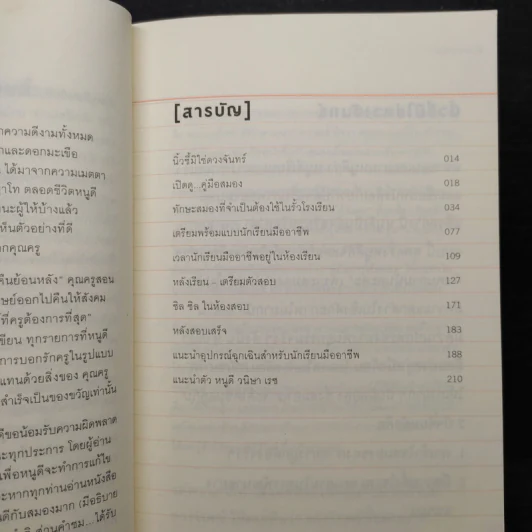 ความดีงามทั้งหมด
และดอกมะเขือ
ได้มาจากความเมตตา
ตลอดชีวิตหนูดี
ผู้ให้บ้างแล้ว
เห็นตัวอย่างที่ดี
คุณครู
คืนย้อนหลัง" คุณครูสอน
ออกไปคืนให้สังคม
ที่ครูต้องการที่สุด"
เขียน ทุกรายการที่หนูดี
การบอกรักครูในรูปแบบ
แทนด้วยสิ่งของ คุณครู
สำเร็จเป็นของขวัญเท่านั้น
ขอน้อมรับความผิดพลาด
ทุกประการ โดยผู้อ่าน
เพื่อหนูดีจะทำการแก้ไข
หากทุกท่านอ่านหนังสือ
ดีกับสมองมาก (มีอธิบาย
คำชม...ได้รับ
[สารบัญ]
นิ้วชี้มิใช่ดวงจันทร์ 014
เปิดคู...คู่มือสมอง 018
ทักษะสมองที่จำเป็นต้องใช้ในรั้วโรงเรียน 034
เตรียมพร้อมแบบนักเรียนมืออาชีพ 077
เวลานักเรียนมืออาชีพอยู่ในห้องเรียน 109
หลังเรียน - เตรียมตัวสอบ 127
ชิล ชิล ในห้องสอบ 171
หลังสอบเสร็จ 183
แนะนำอุปกรณ์ฉุกเฉินสำหรับนักเรียนมืออาชีพ 188
แนะนำตัว หนูดี วนิษา เรซ 210